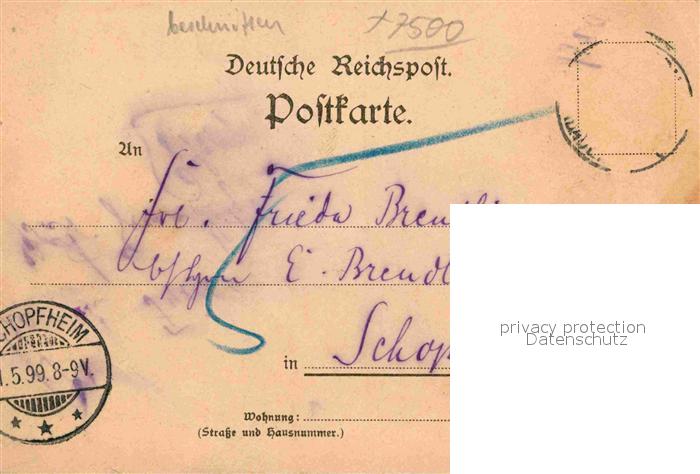 beschnitten +7500
Deutsche Reichspost.
Postkarte.
An
Frl. Frieda
E. Brendl
in Schop
CHOPFHEIM
1.5.99.8-9V.
Wohnung:
(Straße und Hausnummer.)
privacy protection
Datenschutz